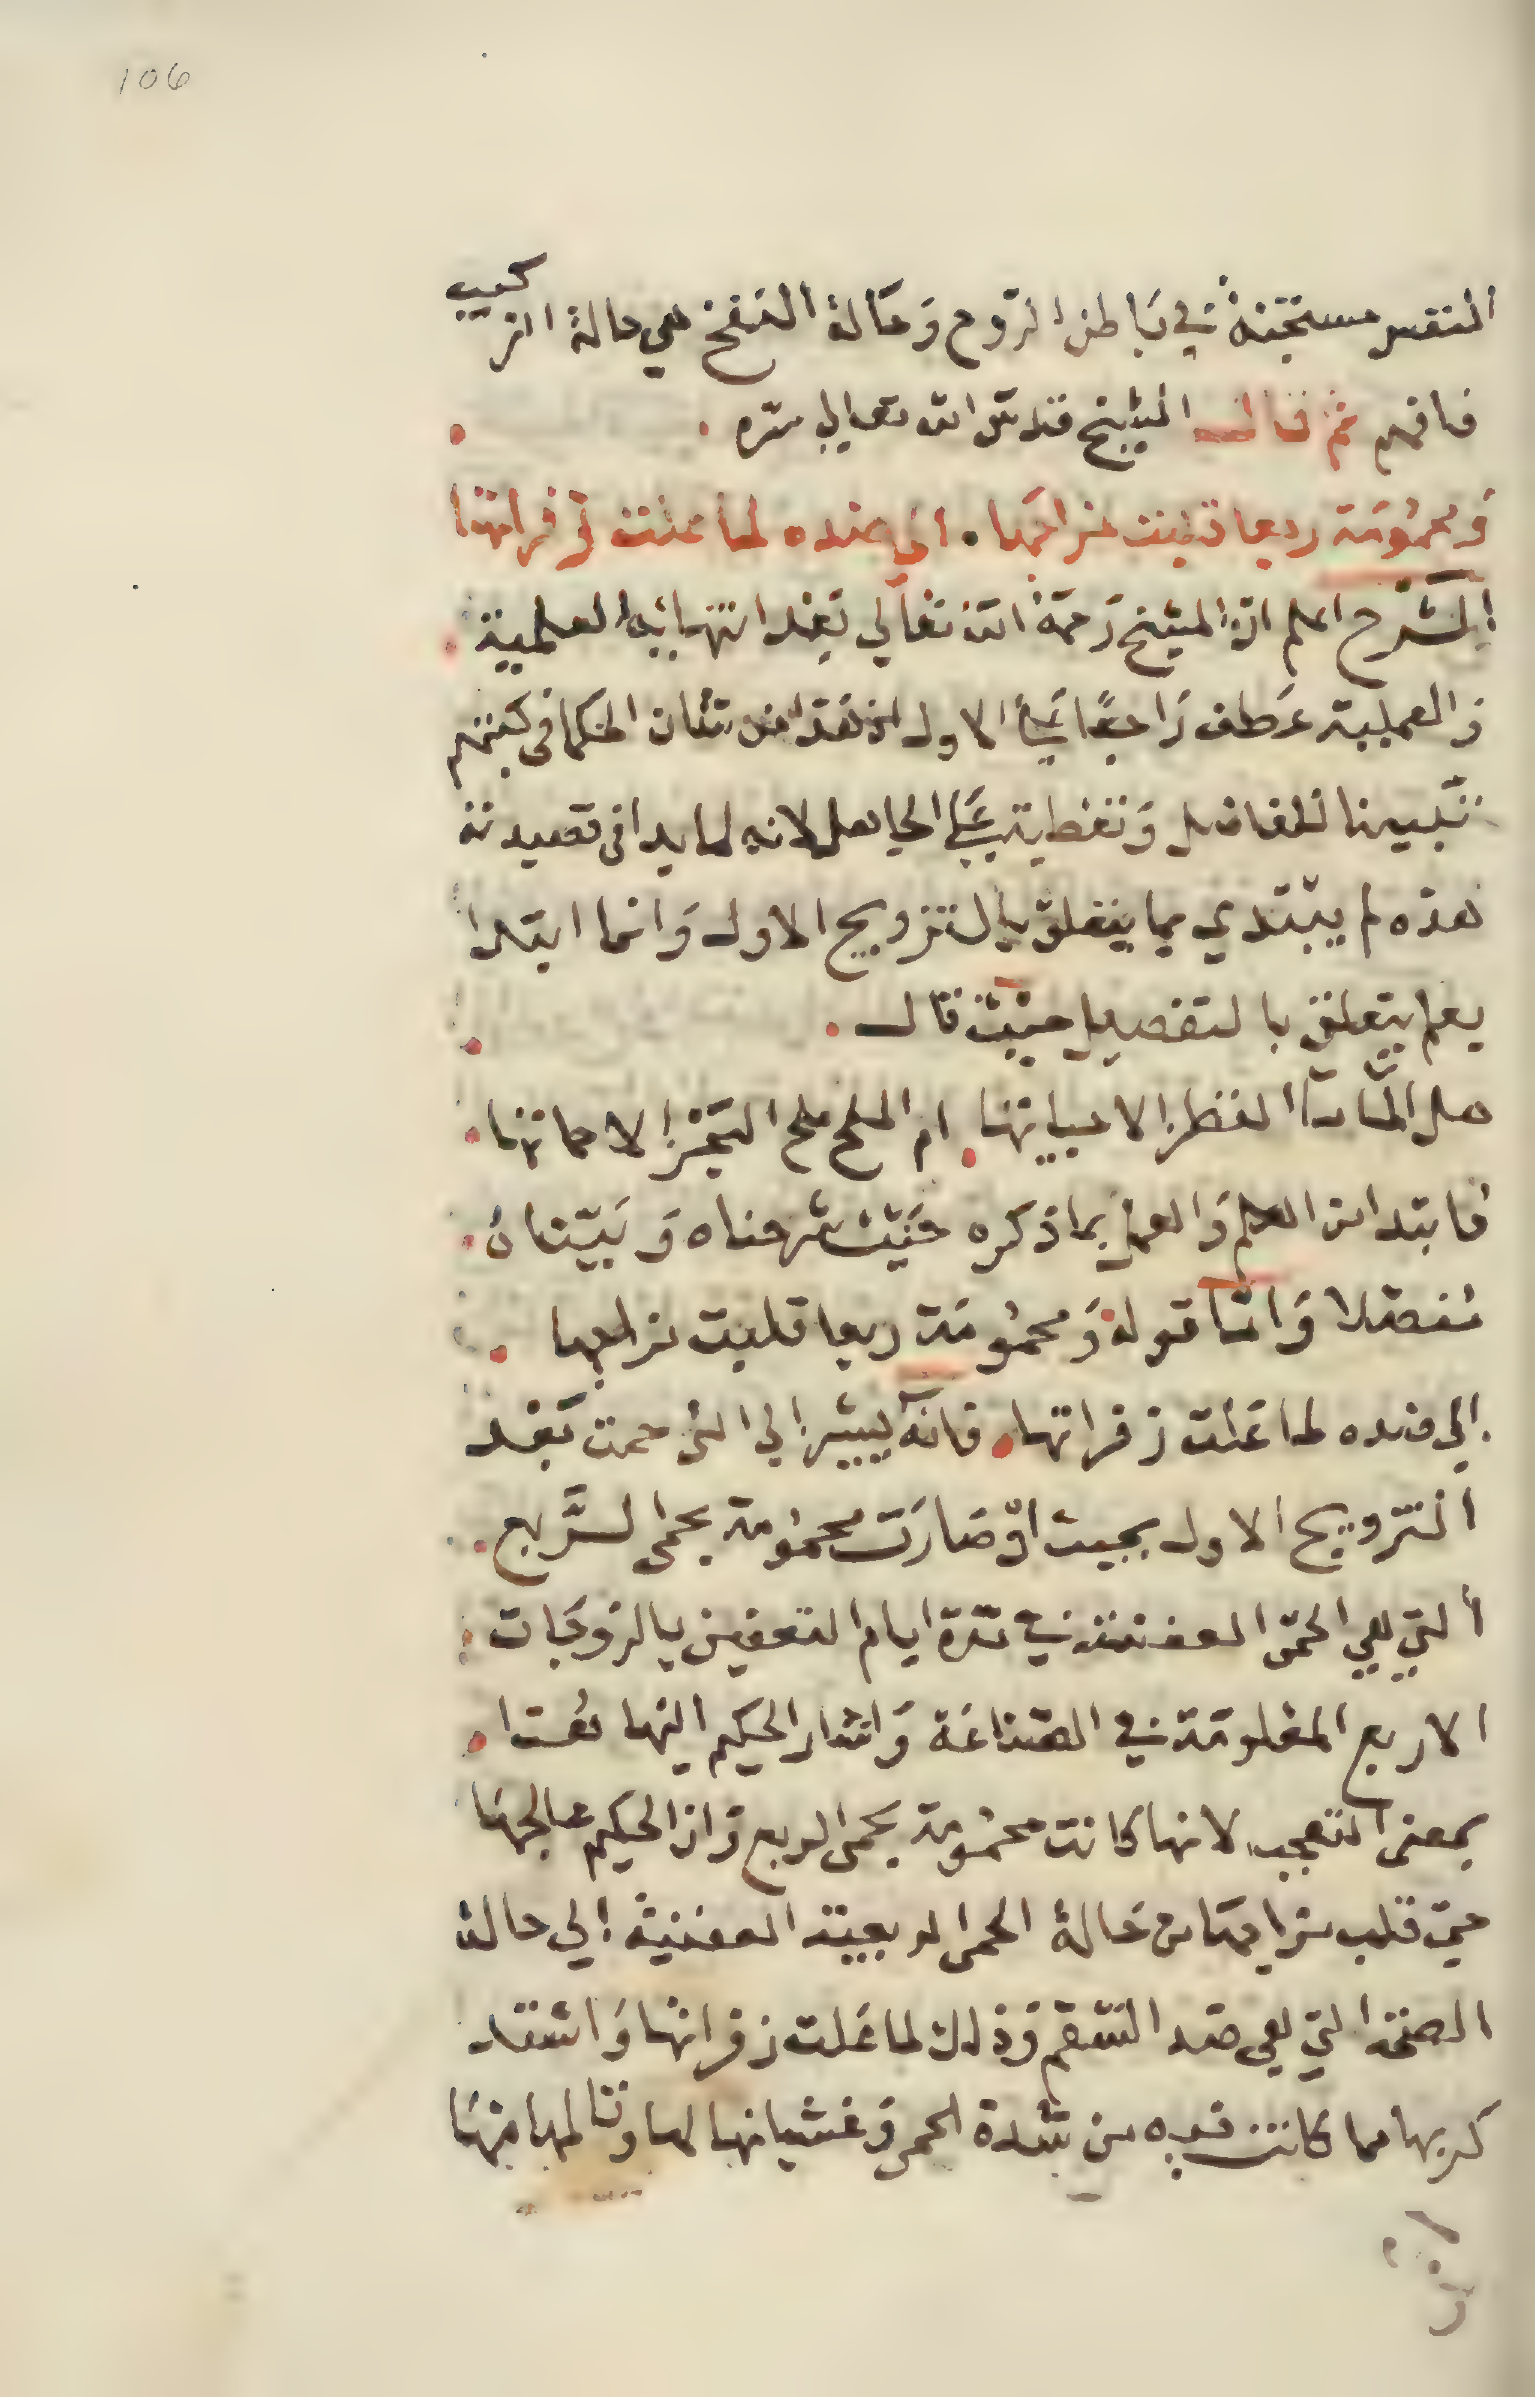 106
النفس مستجنة في باطن الروح وحالة النفخ هي حالة التركيب
فافهم ثم قال الشيخ قدس الله تعالى سره
ومحمومة ربعا قلبت مزاجها . الى ضده لما علت زفراتها
الشرح اعلم ان الشيخ رحمه الله تعالي بعد انتهائه العلمية
والعملية عطف راجعا على الاول اذ هذا من شان الحكما في كتبهم
تبيينا للفاضل وتغطية على الجاهل لانه لما بدا في قصيدته
هذه لم يبتدي بما يتعلق بالتزويج الاول وانما ابتدا
بما يتعلق بالتفصيل حيث قال
هل الماء ماء القطر الا حياتها ام الملح ملح البحر الا مماتها
فابتدا من العلم والعمل بما ذكره حيث شرحناه وبيناه
مفصلا واما قوله ومحمومة ربعا قلبت مزاجها
الي ضده لما علت زفراتها فانه يشير الي التي حمت بعد
التزويج الاول بحيث ان صارت محمومة بحمى الربع
التي هي الحمى العفنية في مدة ايام التعفين بالزوجات
الاربع المعلومة في الصناعة واشار الحكيم اليها
بمعنى التعجب لانها كانت محمومة بحمى الربع وان الحكيم عالجها
حتى قلب مزاجها من حالة الحمى الربعية العفنية الي حالة
الصحة التي هي ضد السقم وذلك لما علت زفراتها واشتد
كربها مما كانت فيه من شدة الحمى وغشيانها لها